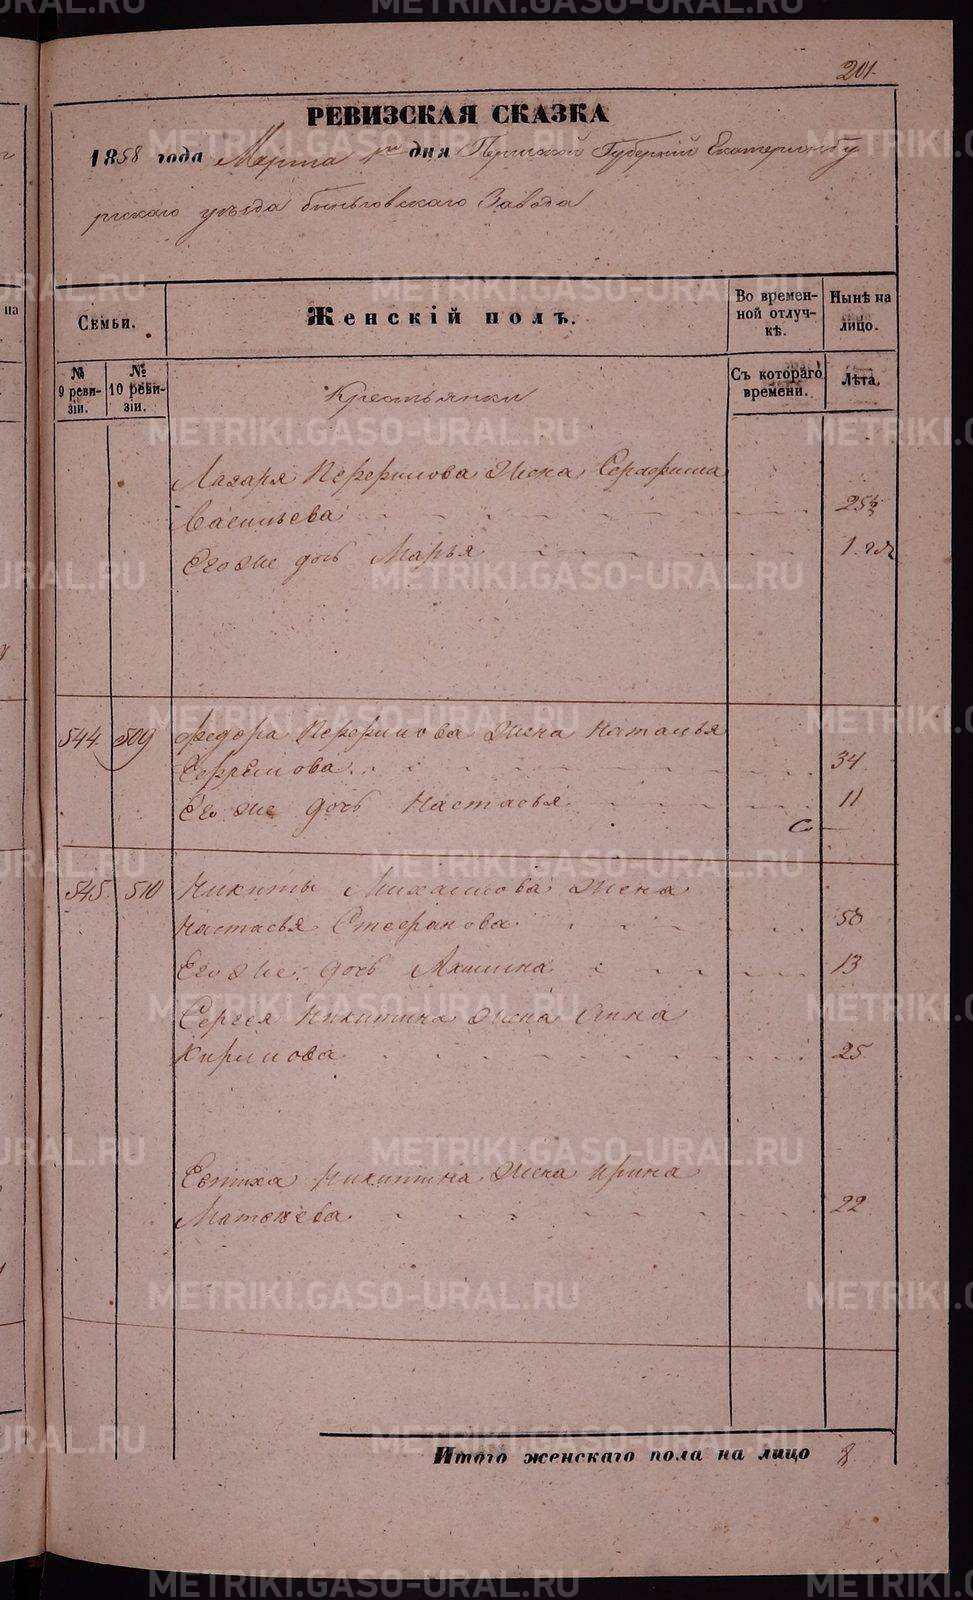 201.
РЕВИЗСКАЯ СКАЗКА
1858 года Марта дня Пермской Губерніи Екатеринбу
ргскаго уезда Быньговскаго Завода
Семьи.
Женскій полъ.
Во времен-
ной отлуч-
кѣ.
Нынѣ на
лицо.
№
9 реви-
зіи.
№
10 реви-
зіи.
Крестьянки
Съ котораго
времени.
Лѣта.
Лазаря Перфилова Жена Серафима
Васильева 25½
Его же дочь Марья 1
544. 509 Федора Перфилова Жена Наталья
Ефремова 34
Его же дочь Настасья 11
545. 510 Никиты Михайлова Жена
Настасья Стефанова 50
Его же дочь Акилина 13
Сергея Никитина Жена Анна
Кирилова 25
Евтиха Никитина Жена Ирина
Матвѣева 22
Итого женскаго пола на лицо 8.
METRIKI.GASO-URAL.RU